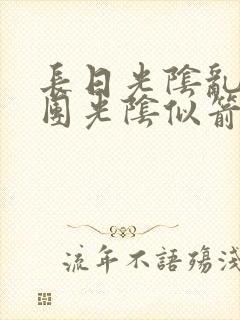 長日光陰亂
團光陰似箭
流年不語殤淺